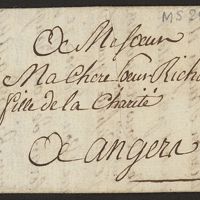 MS 2
A Ma Sœur
Ma Chere Sœur Rich
fille de la Charité
A angers